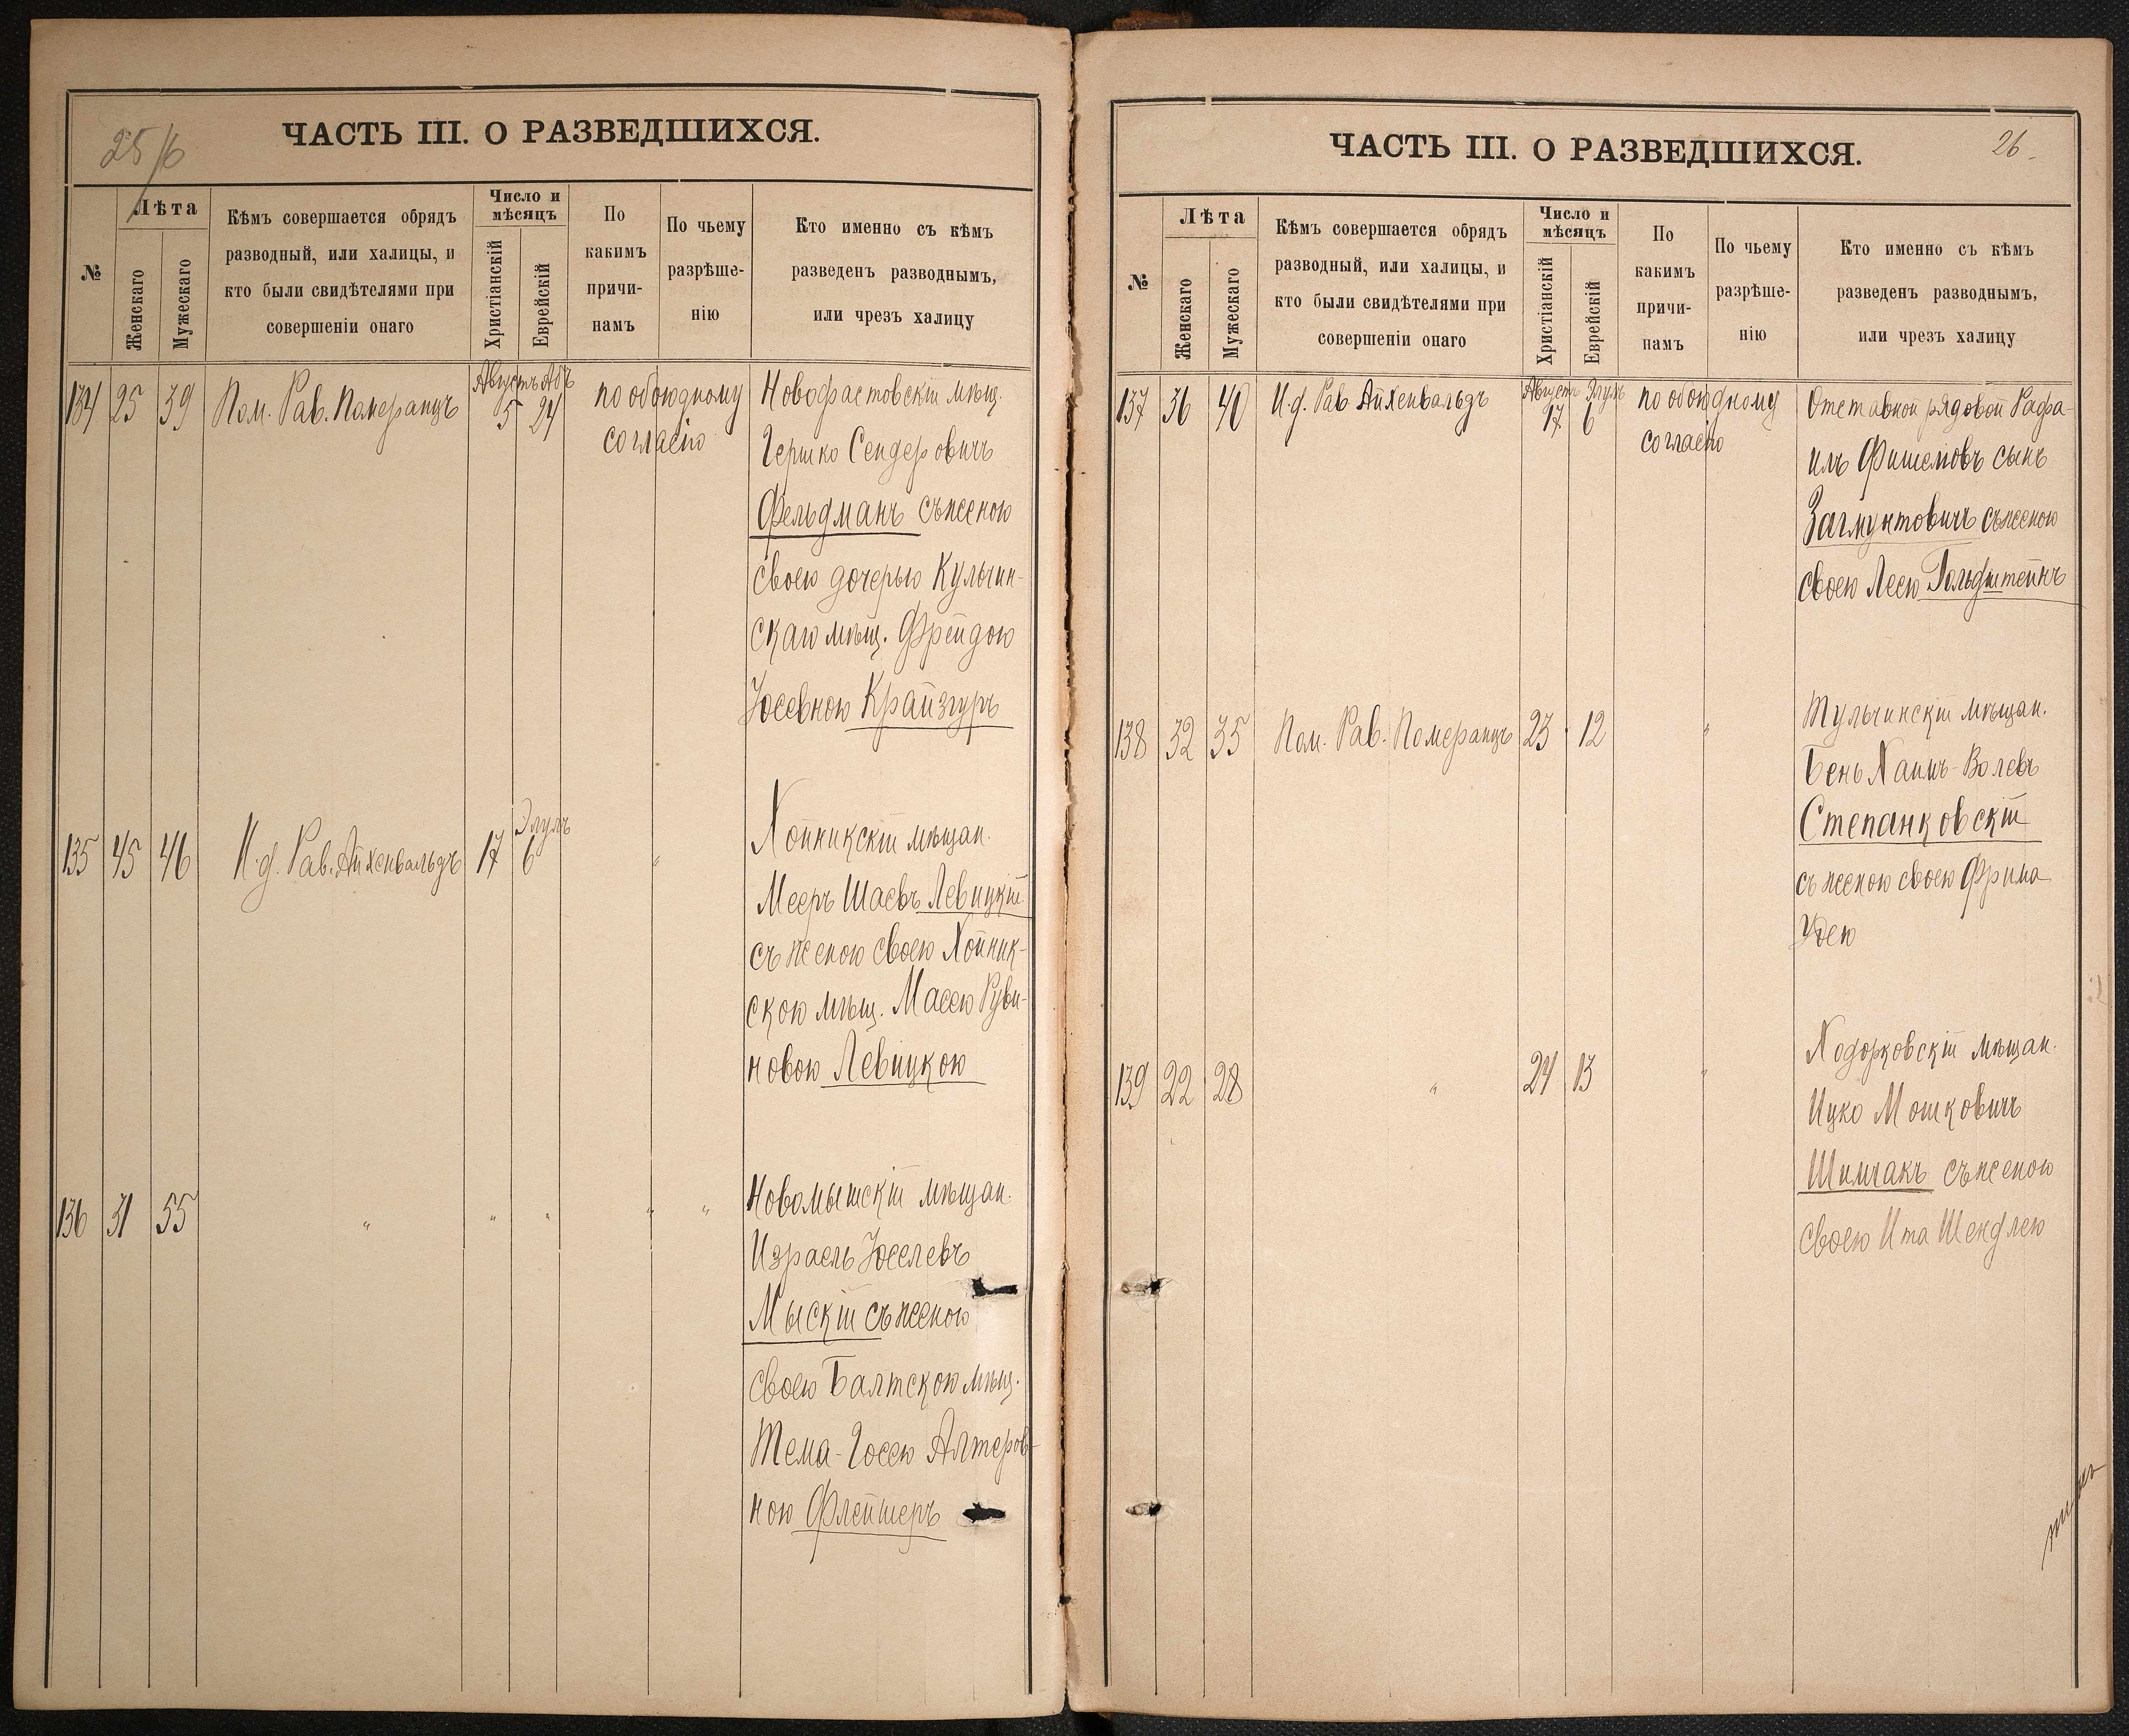 25/6
ЧАСТЬ III. О РАЗВЕДШИХСЯ.
№
Лѣта
Женскаго
Мужескаго
Кѣмъ совершается обрядъ
разводный, или халицы, и
кто были свидѣтелями при
совершеніи онаго
Число и
мѣсяцъ
Христіанскій
Еврейскій
По
какимъ
причи-
намъ
По чьему
разрѣше-
нію
Кто именно съ кѣмъ
разведенъ разводнымъ,
или чрезъ халицу
134 25 39 Пом. Рав. Померанцъ Августъ Абъ 5 24 по обоюдному согласію
Новофастовскій мѣщ.
Гершко Сендеровичъ
Фельдманъ съ женою
своею дочерью Кульчин-
скаго мѣщ. Фрейдою
Іосевною Крайзгуръ
135 45 46 И.д. Рав. Айхенвальдъ 17 Элулъ 6 "
Хойникскій мѣщан.
Мееръ Шаевъ Левицкій
съ женою своею Хойник-
скою мѣщ. Масею Руви-
новою Левицкою
136 31 55 " " " " "
Новомышскій мѣщан.
Израель Іоселевъ
Мыскій съ женою
своею Балтскою мѣщ.
Тема-Госею Алтеров-
ною Флейшеръ
26.
ЧАСТЬ III. О РАЗВЕДШИХСЯ.
№
Лѣта
Женскаго
Мужескаго
Кѣмъ совершается обрядъ
разводный, или халицы, и
кто были свидѣтелями при
совершеніи онаго
Число и
мѣсяцъ
Христіанскій
Еврейскій
По
какимъ
причи-
намъ
По чьему
разрѣше-
нію
Кто именно съ кѣмъ
разведенъ разводнымъ,
или чрезъ халицу
137 36 40 И.д. Рав. Айхенвальдъ Августъ Элулъ 17 6 по обоюдному согласію
Отставной рядовой Рафа-
илъ Фишелювъ сынъ
Загмунтовичъ съ женою
своею Леею Гольдштейнъ
138 32 35 Пом. Рав. Померанцъ 23 12 "
Тульчинскій мѣщан.
Бень Хаимъ-Волевъ
Степанковскій
съ женою своею Фрима
Удею
139 22 28 " 24 13 "
Ходорковскій мѣщан.
Ицко Мошковичъ
Шимчакъ съ женою
своею Ита Шендлею